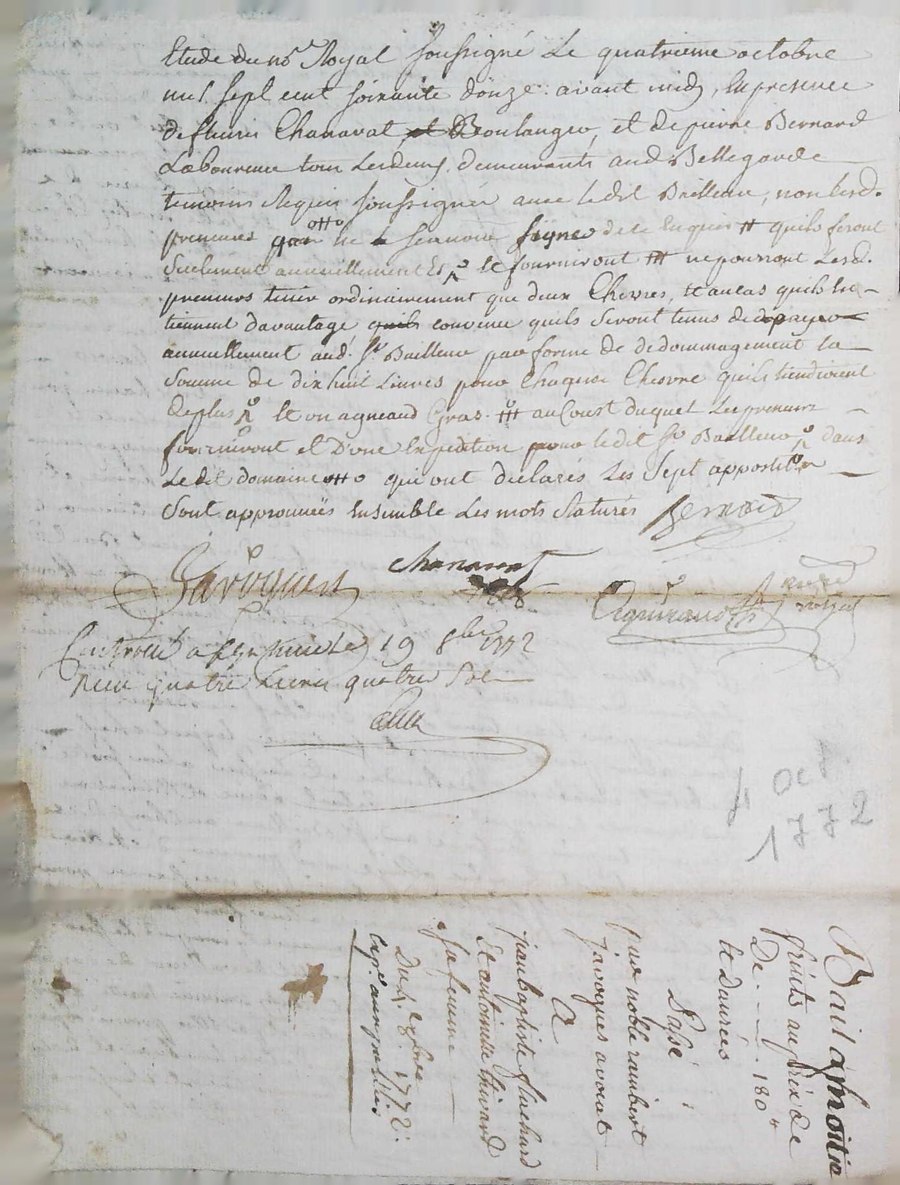 Etude du no.re Royal soussigné Le quatrieme octobre
mil sept cent soixante douze avant midy, En presence
de fleuri Chanavat et Boulanger, et de pierre Bernard
Laboureur tous Lesdeux demeurants aud Bellegarde
temoins Requis soussignés avec ledit Bailleur, non lesd.
preneurs pour ne scavoir signer de ce Enquis # quils feront
seulement annuellement Et le fourniront ### ne pourront Lesd.
preneurs tenir ordinairement que deux Chevres, Et au cas quils En
tiennent davantage quils convenu quils seront tenus de payer
annuellement aud. Sr. Bailleur par forme de dedommagement la
somme de dix huit Livres pour Chaque Chevre quils tiendroient
de plus Et un agneaud Gras ### au Court duquel Les preneurs
fourniront et D'une Expedition pour ledit Sr Bailleur dans
Le dit domaine qui ont déclarés Les Sept appostilles
Sont approuvées Ensemble Les mots Raturés Bernard
Javogues Chanavat
Controllé a le 19 8bre 1772
Recu quatre Livres quatre Sols
4 oct
1772
Bail a moitié
fruits au prix de
De 180 #
Et danrées
Passé
par noble rambert
javogues avocat
A
jean baptiste fluchard
Et antoinette thivard
sa femme
Du 4.e 8bre 1772.